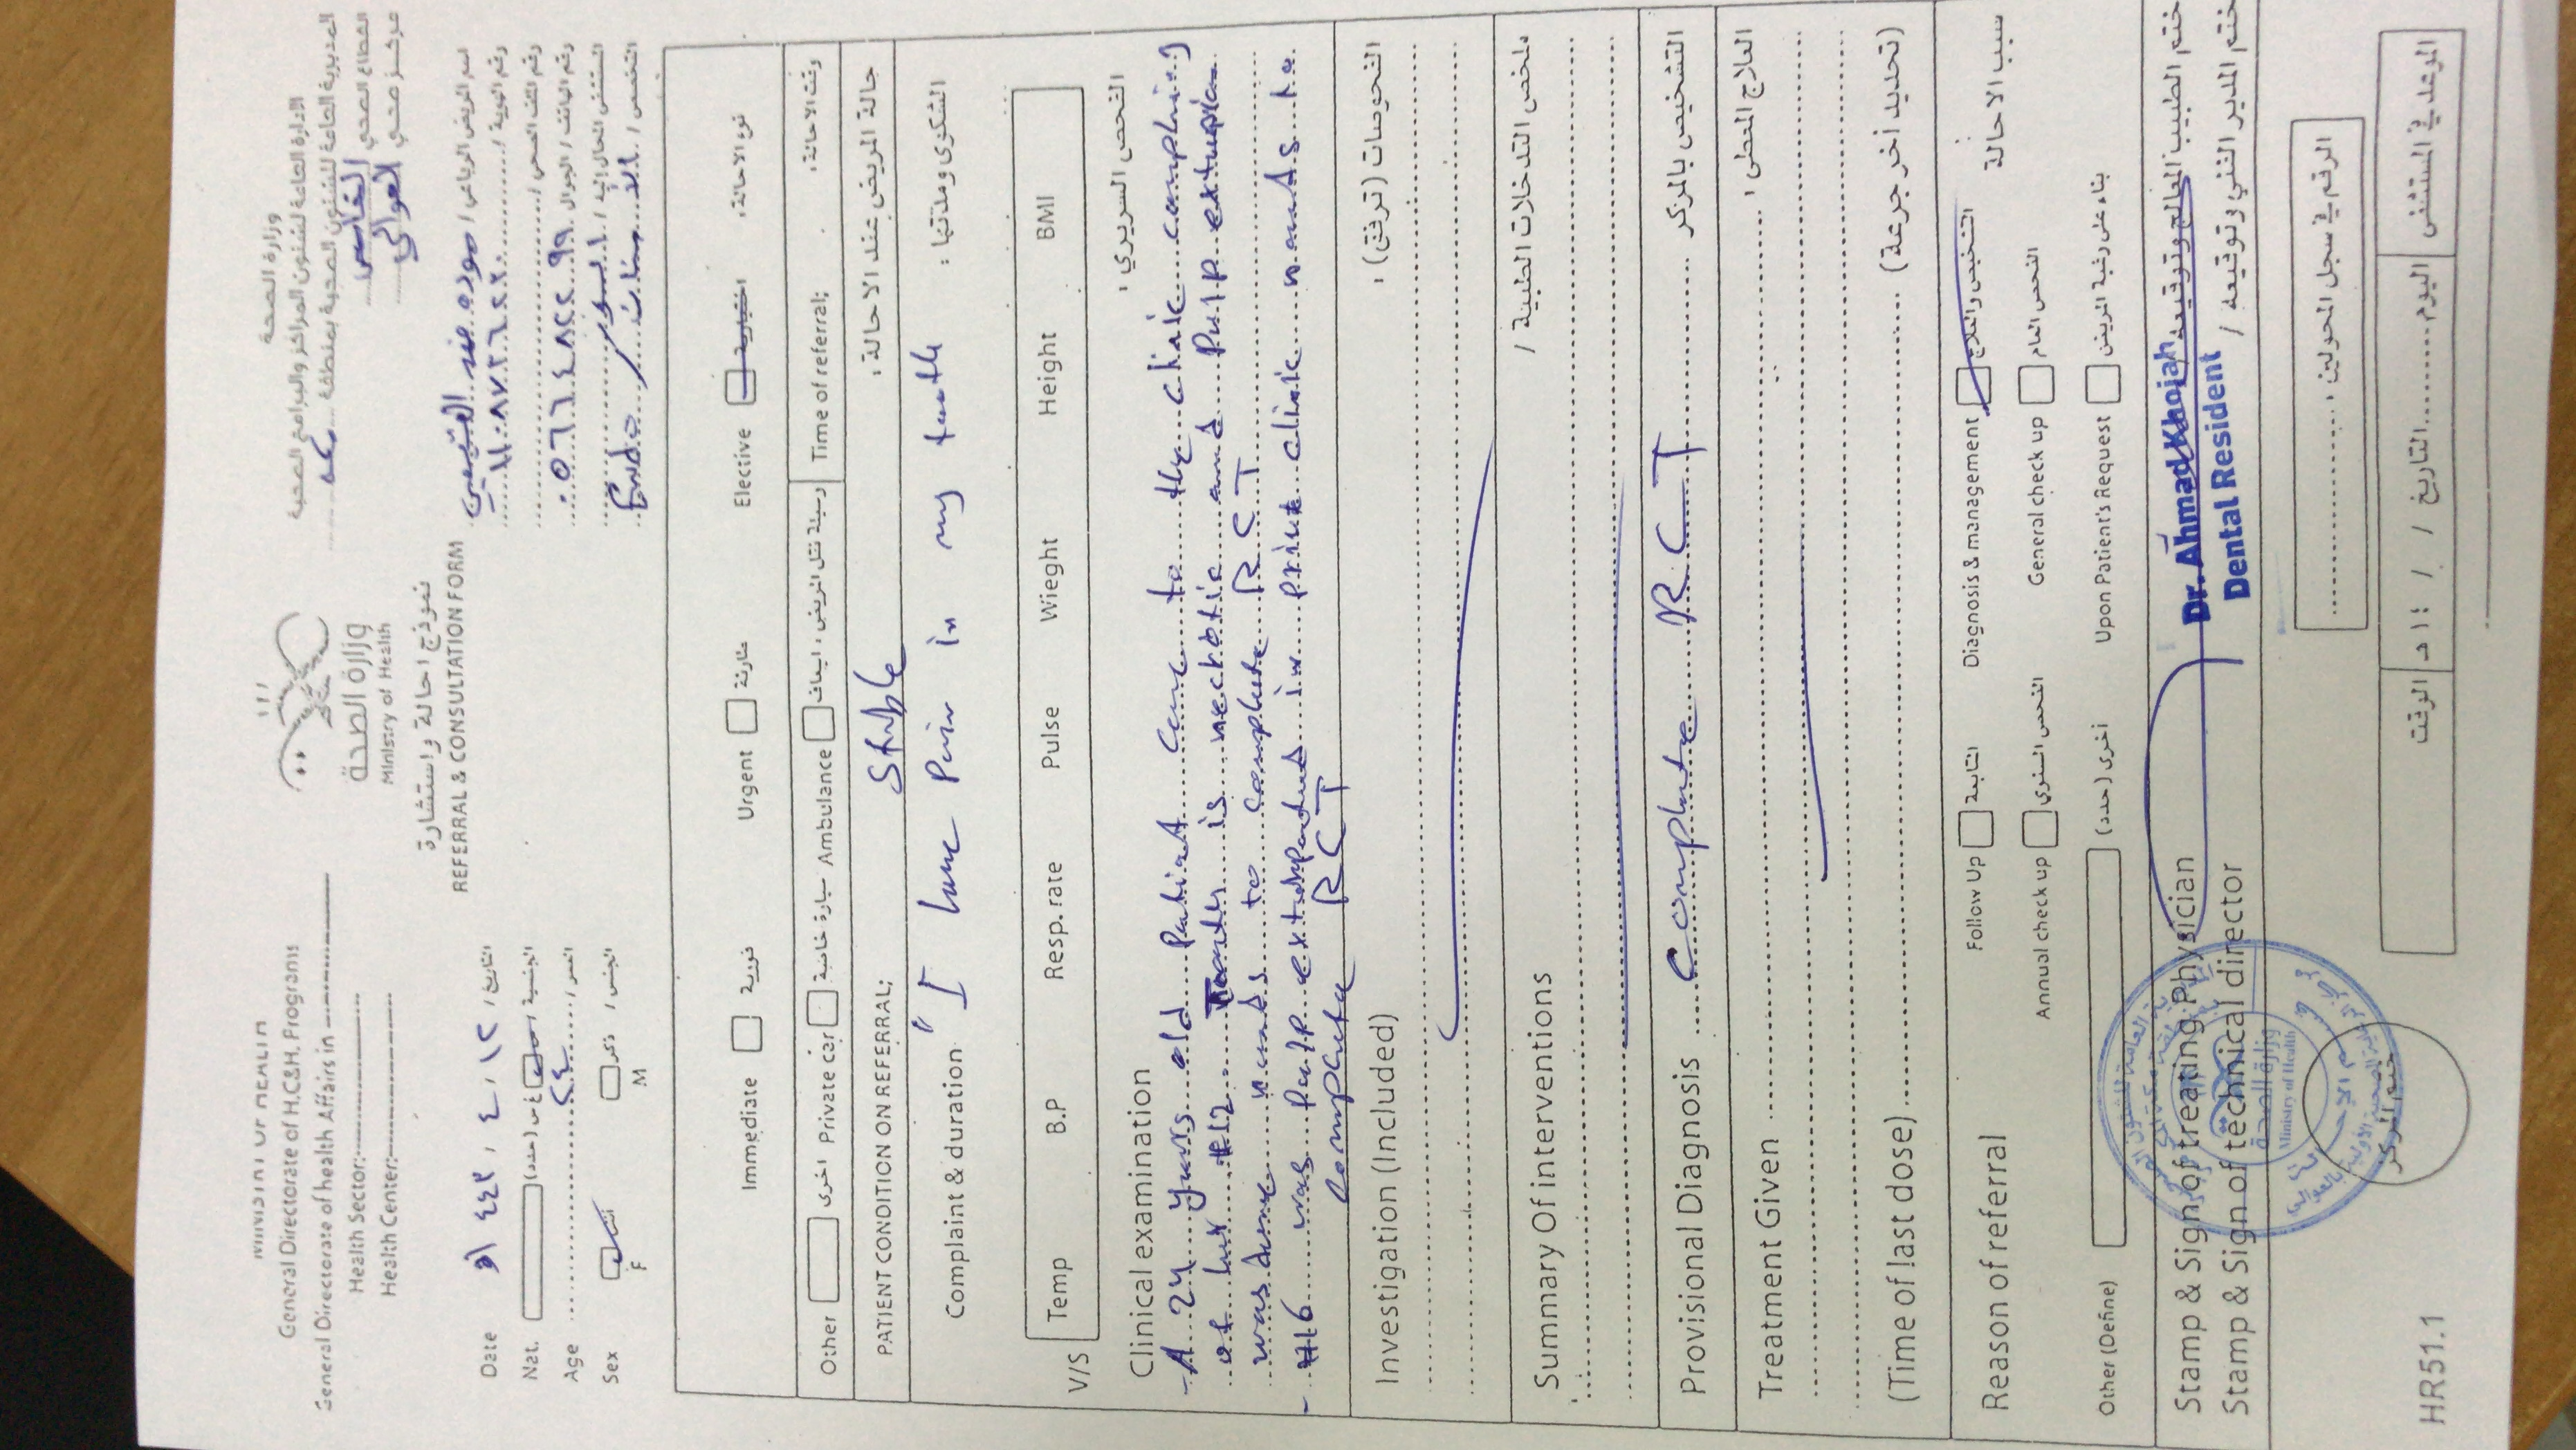 MINISTRY OF HEALTH
General Directorate of H.C&H. Programs
General Directorate of health Affairs in
Health Sector:
Health Center:
وزارة الصحة
Ministry of Health
نموذج احالة واستشارة
REFERRAL & CONSULTATION FORM
وزارة الصحة
الادارة العامة لشئون المراكز والبرامج الصحية
المديرية العامة للشئون الصحية بمنطقة مكة
القطاع الصحي
مركز صحي العوالي
اسم المريض الرباعي /
رقم الهوية /
رقم الملف الصحي /
رقم الهاتف / الجوال ٠٥٦٦٤٨٢٢٩٩
المستشفى المحال إليه /
التخصص / الأسنان / Endo
Date ١٢ / ٤ / التاريخ /
Nat. (حدد) غ س الجنسية
Age ٢٤ العمر /
Sex أنثى ذكر الجنس /
F M
Immediate فورية Urgent طارئة Elective اختيارية نوع الاحالة :
Other اخرى Private car سيارة خاصة Ambulance وسيلة نقل المريض : اسعاف Time of referral; وقت الاحالة :
PATIENT CONDITION ON REFERRAL; Stable حالة المريض عند الاحالة :
Complaint & duration "I have Pain in my tooth الشكوى ومدتها :
V/S Temp B.P Resp. rate Pulse Wieght Height BMI
Clinical examination الفحص السريري :
- A 24 years old Patient came to the clinic
of her #12. Tooth is necrotic and Pulp
was done needs to complete RCT
- #16 was Pulp in clinic needs to
complete RCT
Investigation (Included) الفحوصات (ترفق) :
Summary Of interventions ملخص التدخلات الطبية /
Provisional Diagnosis complete RCT التشخيص بالمركز
Treatment Given العلاج المعطى :
(Time of last dose) (تحديد أخر جرعة)
Reason of referral Follow Up المتابعة Diagnosis & management التشخيص والعلاج سبب الاحالة
Annual check up الفحص السنوي General check up الفحص العام
Other (Define) أخرى (حدد) Upon Patient's Request بناء على رغبة المريض
Stamp & Sign of treating Physician Dr. Ahmad Khojah ختم الطبيب المعالج وتوقيعه /
Stamp & Sign of technical director Dental Resident ختم المدير الفني وتوقيعه /
وزارة الصحة
Ministry of Health
ختم المركز
الرقم في سجل المحولين :
الموعد في المستشفى اليوم التاريخ / / ١٤ هـ الوقت
HR51.1